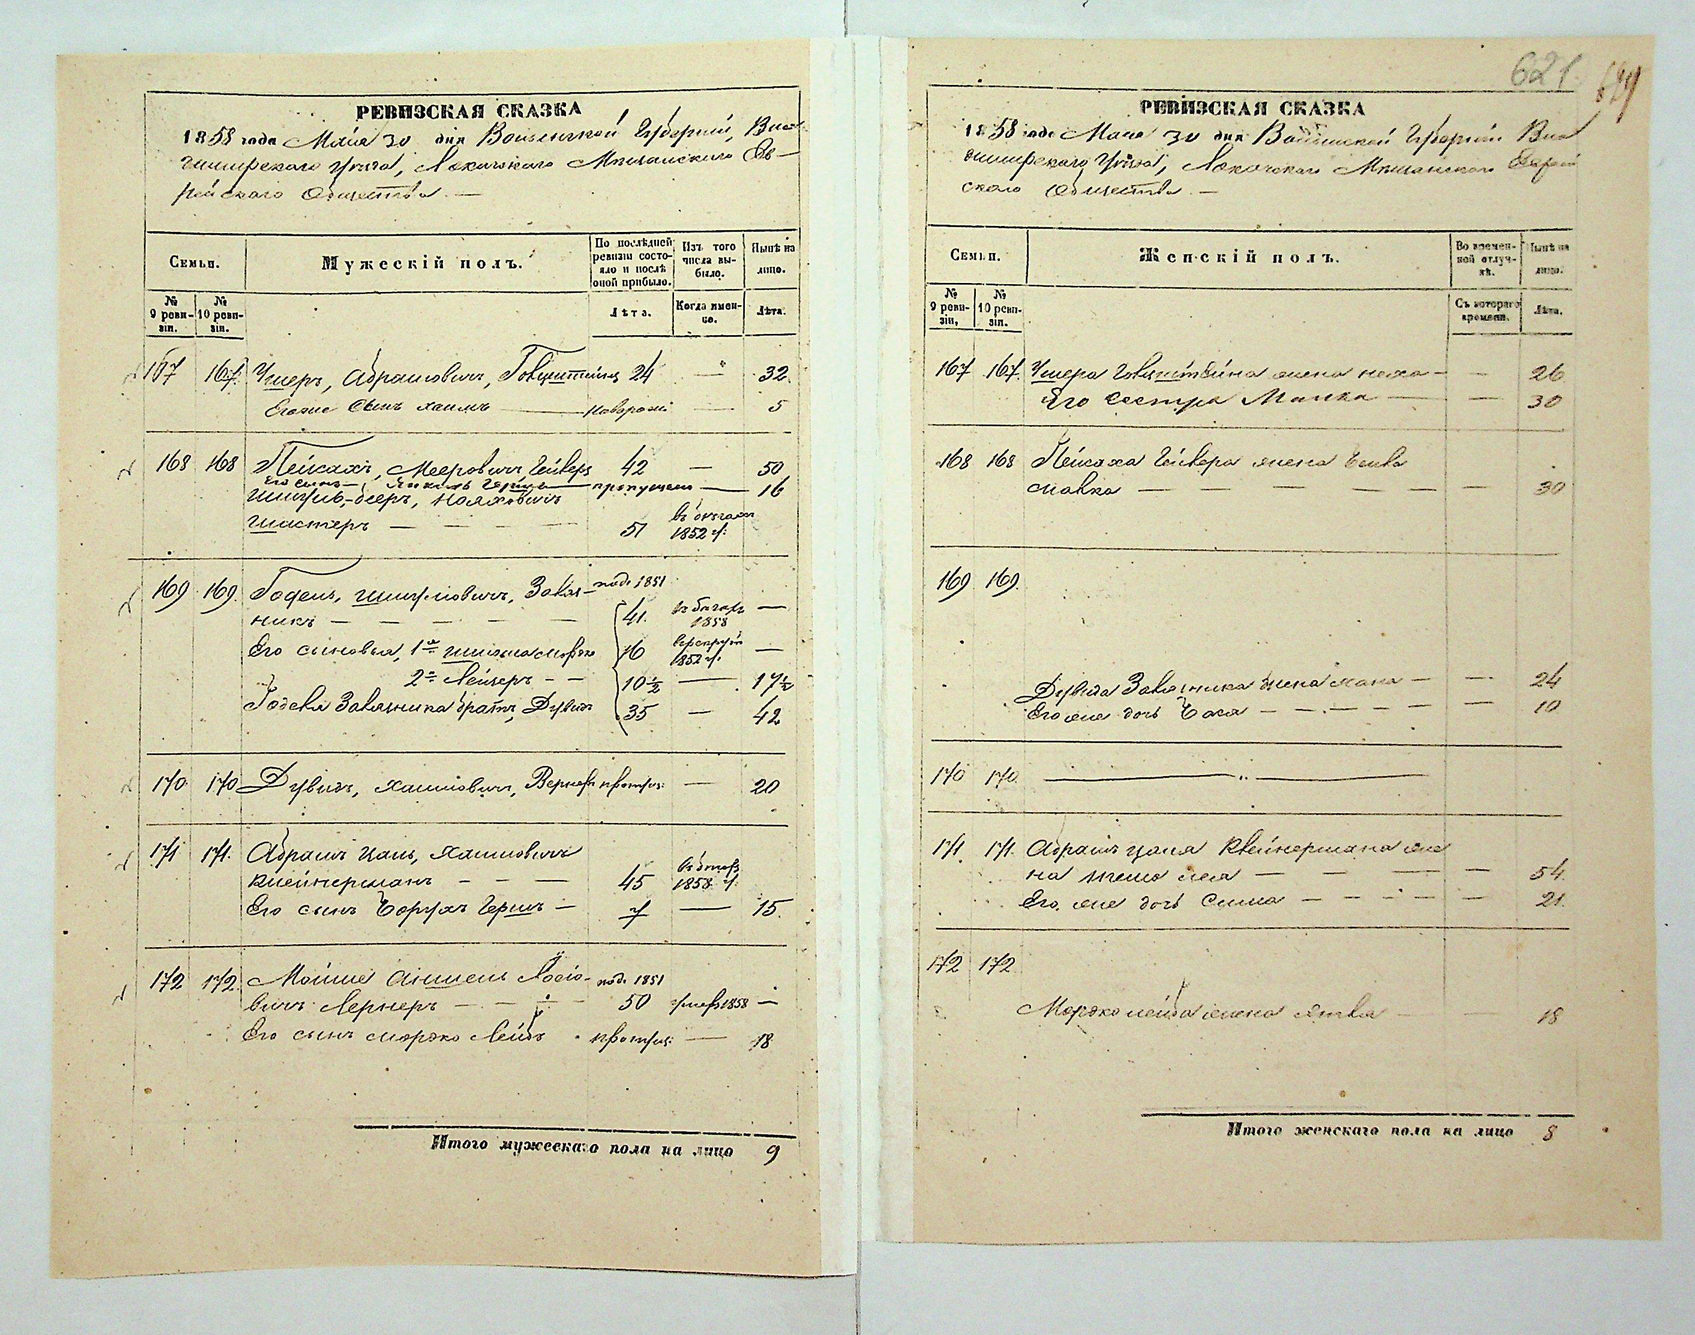 РЕВИЗСКАЯ СКАЗКА
1858 года Мая 30 дня Волынской Губернии, Вла-
димирского Уезда, Локачского Мещанского Ев-
рейского Общества. —
Семьи.
Мужескій полъ.
По послѣдней ревизіи состояло и послѣ оной прибыло.
Изъ того числа выбыло.
Нынѣ на лицо.
№ 9 ревизіи.
№ 10 ревизіи.
Лѣта.
Когда именно.
Лѣта.
167 167 Ушеръ, Абрамовичъ, Говштейнъ 24 — 32
Егоже сынъ Хаимъ — новорож — 5
168 168 Пейсахъ, Мееровичъ Гейверъ 42 — 50
Его сынъ — Янкель Герцъ — пропущенъ — 16
Шмуль-Беръ, Нолховичъ
Шастеръ — — — — 51 въ бегахъ 1852 г:
169 169 Годель, Шмулиовичъ, Завяз- под. 1851
никъ — — — — — 41. 1858 —
Его сыновья, 1й Шлиома Мордко 16 в рекруты 1852 г. —
2й Лейзеръ — — 10½ — 17½
Годеля Завязника братъ, Дувидъ 35 — 42
170 170 Дувидъ, Хаимовичъ, — 20
171 171. Абрамъ Цаль, Хаимовичъ
Клейнерманъ — — — 45 1858 г.
Его сынъ Борухъ Гершъ — 7 — 15.
172 172. Мойше Аншель Лосіо- под. 1851
вичъ Лернеръ — — — 50 умер 1858 —
Его сынъ Мордко Лейбъ — 18
Итого мужескаго пола на лицо 9
621.
РЕВИЗСКАЯ СКАЗКА
1858 года Мая 30 дня Волынской Губернии Вла
димирского Уезда, Локачского Мещанского Еврей
ского Общества. —
Семьи.
Женскій полъ.
Во временной отлучкѣ.
Нынѣ на лицо.
№ 9 ревизіи,
№ 10 ревизіи.
Съ котораго времени.
Лѣта.
167 167. Ушера Говштейна жена Неха — — 26
Его сестра Малка — — 30
168 168 Пейсаха Гейвера жена
— — — — — 30
169 169.
Дувида Завязника жена — — 24
Его же дочь Бася — — — — — — 10
170 170. — „ —
171. 171. Абрамъ Цаля Клейнермана же
на — — — — 54.
Его же дочь Сима — — — — — 21.
172 172
Мордко Лейба жена — — 18
Итого женскаго пола на лицо 8